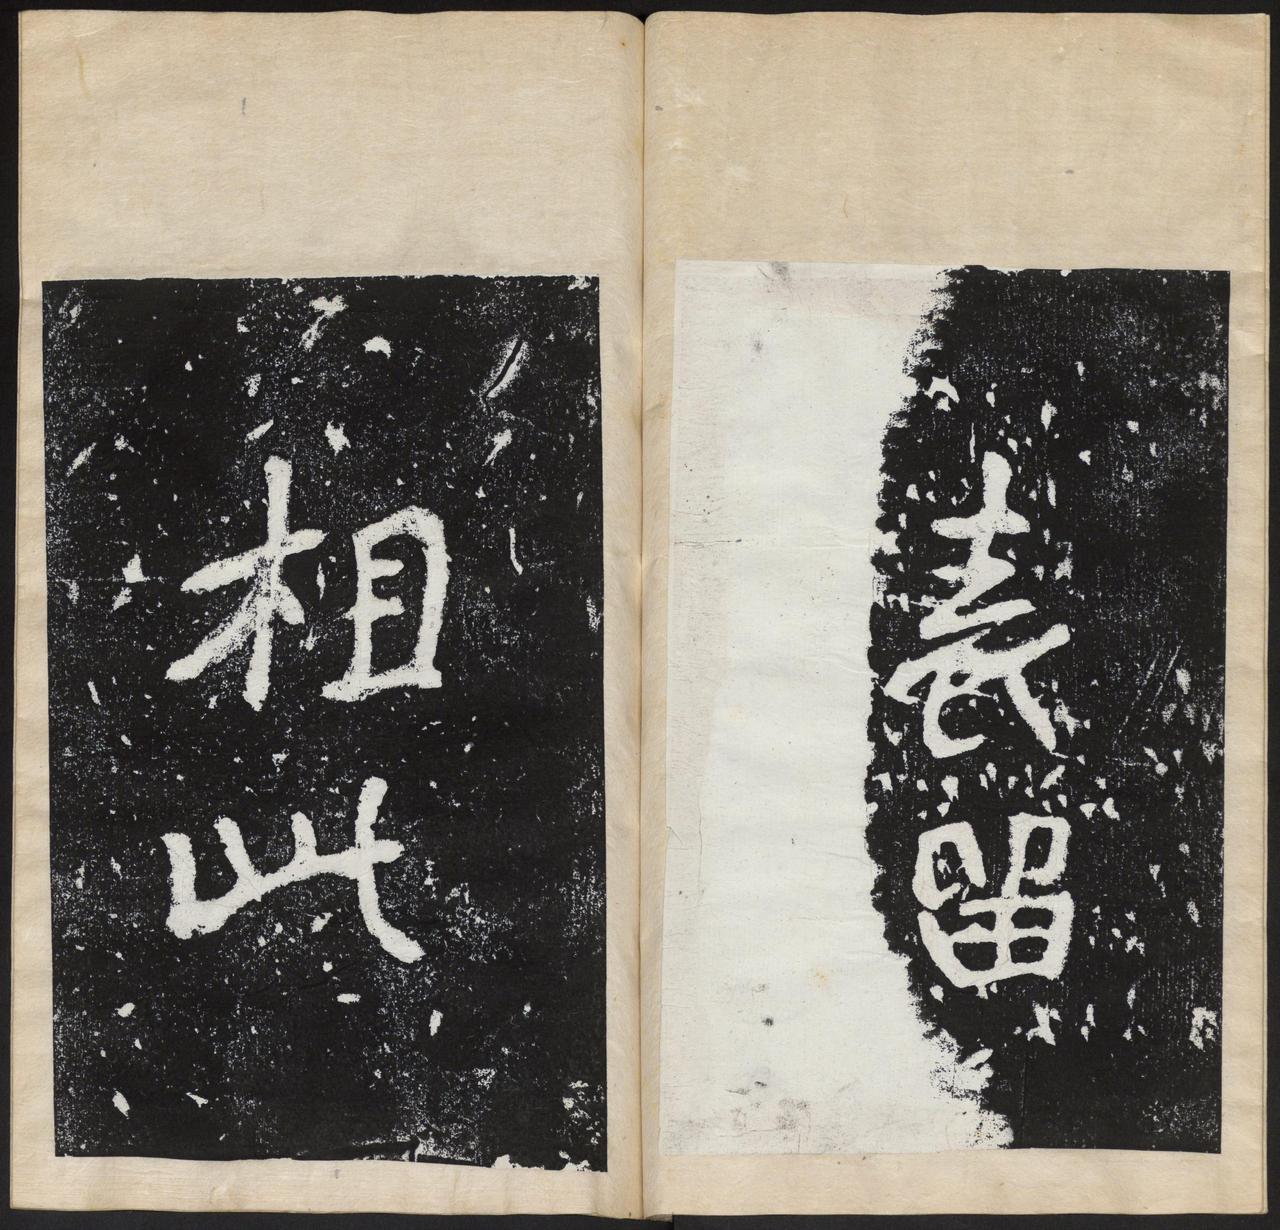 表留
相此